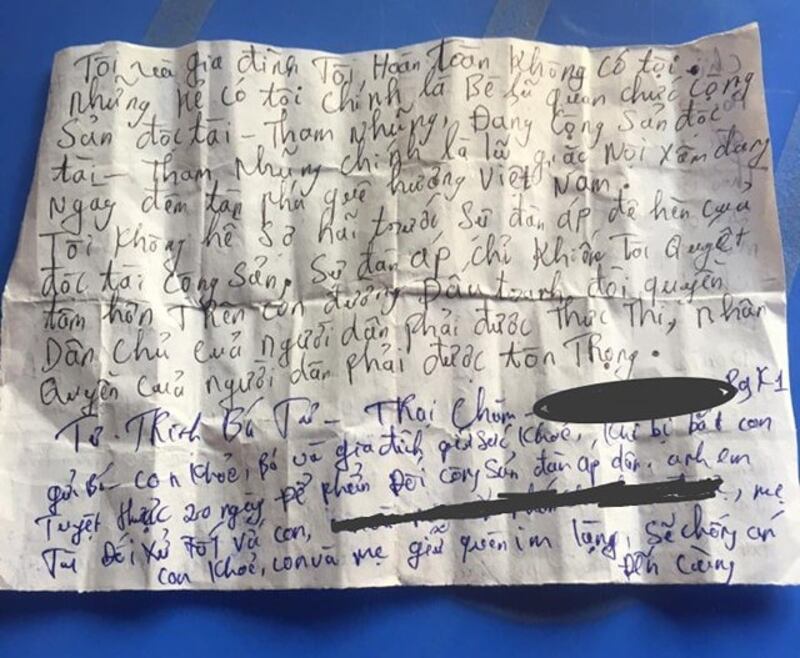 Tôi và gia đình Tôi Hoàn toàn Không có tội.
những kẻ có tội chính là Bè lũ quan chức cộng
Sản độc tài - Tham nhũng, Đảng Cộng Sản độc
tài - Tham Những chính là lũ giặc Nội Xâm đang
Ngày đêm tàn phá quê hương Việt Nam.
Tôi Không hề Sợ hãi trước Sự đàn áp đê hèn của
độc tài Cộng Sản, Sự đàn áp chỉ Khiến Tôi Quyết
tâm hơn Trên con đường Đấu tranh đòi quyền
Dân chủ của người dân phải được Thực Thi, nhân
Quyền của người dân phải được tôn Trọng.
Tư - Trịnh Bá Tư - Trại Chăm K1
gửi Bố - con Khoẻ, Bố và gia đình giữ sức Khoẻ, Khi bị bắt con
Tuyệt thực 20 ngày Để phản Đối cộng Sản đàn áp dân. anh em
Tù Đối xử Tốt với con, mẹ
con Khoẻ, con và mẹ giữ quyền im lặng, sẽ chống án
Đến cùng